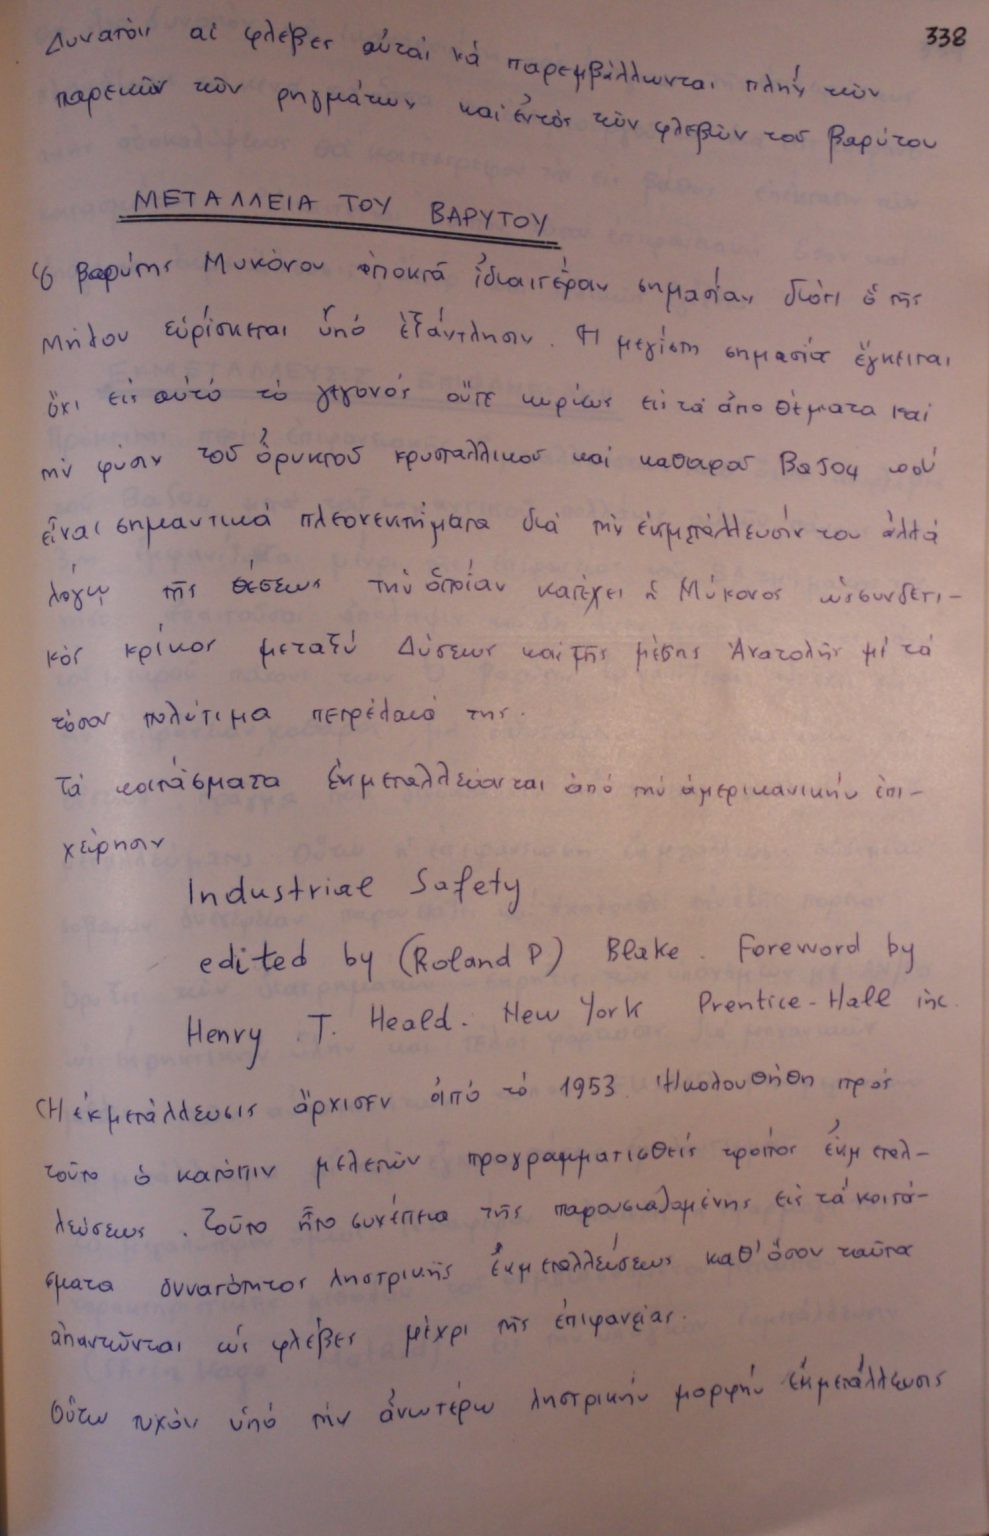 338
Δυνατόν αἱ φλέβες αὗται νά παρεμβάλλωνται πλήν τῶν
παρειῶν τῶν ρηγμάτων καί ἐντός τῶν φλεβῶν τοῦ βαρύτου
ΜΕΤΑΛΛΕΙΑ ΤΟΥ ΒΑΡΥΤΟΥ
Ὁ βαρύτης Μυκόνου ἀποκτᾶ ἰδιαιτέραν σημασίαν διότι ὁ τῆς
Μήλου εὑρίσκεται ὑπό ἐξάντλησιν. Ἡ μεγίστη σημασία ἔγκειται
ὄχι εἰς αὐτό τό γεγονός οὔτε κυρίως εἰς τά ἀποθέματα καί
τήν φύσιν τοῦ ὀρυκτοῦ κρυσταλλικοῦ καί καθαροῦ BaSO4 πού
εἶναι σημαντικά πλεονεκτήματα διά τήν ἐκμετάλλευσίν του ἀλλά
λόγῳ τῆς θέσεως τήν ὁποίαν κατέχει ἡ Μύκονος ὡς συνδετι-
κός κρίκος μεταξύ Δύσεως καί τῆς μέσης Ἀνατολῆς μέ τά
τόσον πολύτιμα πετρέλαιά της.
Τά κοιτάσματα ἐκμεταλλεύονται ἀπό τήν ἀμερικανικήν ἐπι-
χείρησιν
Industrial Safety
edited by (Roland P) Blake. Foreword by
Henry . T. Heald. New York Prentice-Hall inc.
Ἡ ἐκμετάλλευσις ἄρχισεν ἀπό τό 1953. Ἠκολουθήθη πρός
τοῦτο ὁ κατόπιν μελετῶν προγραμματισθείς τρόπος ἐκμεταλ-
λεύσεως. Τοῦτο ἦτο συνέπεια τῆς παρουσιαζομένης εἰς τά κοιτά-
σματα δυνατότητος ληστρικῆς ἐκμεταλλεύσεως καθ' ὅσον ταῦτα
ἀπαντῶνται ὡς φλέβες μέχρι τῆς ἐπιφανείας.
Οὕτω τυχόν ὑπό τήν ἀνωτέρω ληστρικήν μορφήν ἐκμετάλλευσις